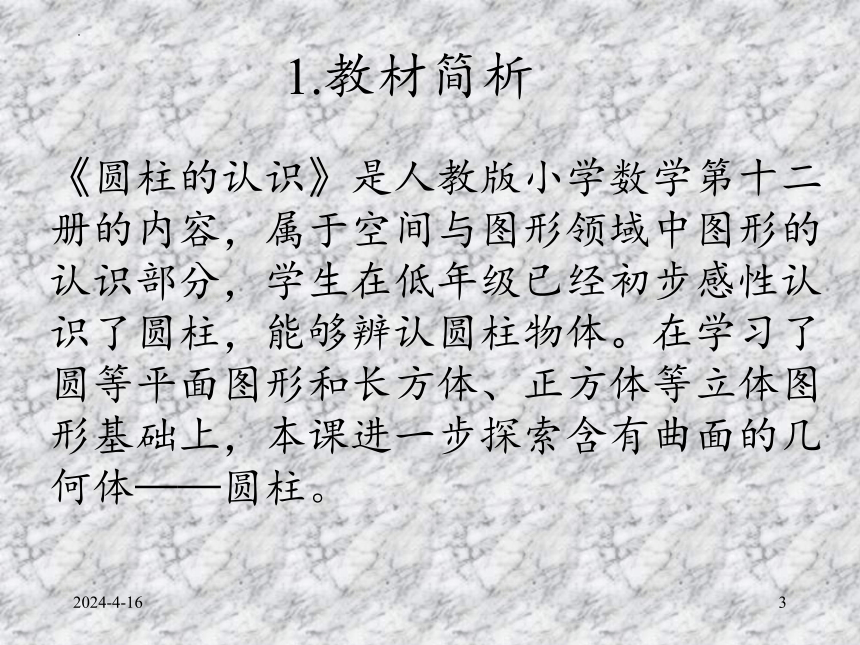 1.教材简析
《圆柱的认识》是人教版小学数学第十二
册的内容，属于空间与图形领域中图形的
认识部分，学生在低年级已经初步感性认
识了圆柱，能够辨认圆柱物体。在学习了
圆等平面图形和长方体、正方体等立体图
形基础上，本课进一步探索含有曲面的几
何体——圆柱。
2024-4-16
3